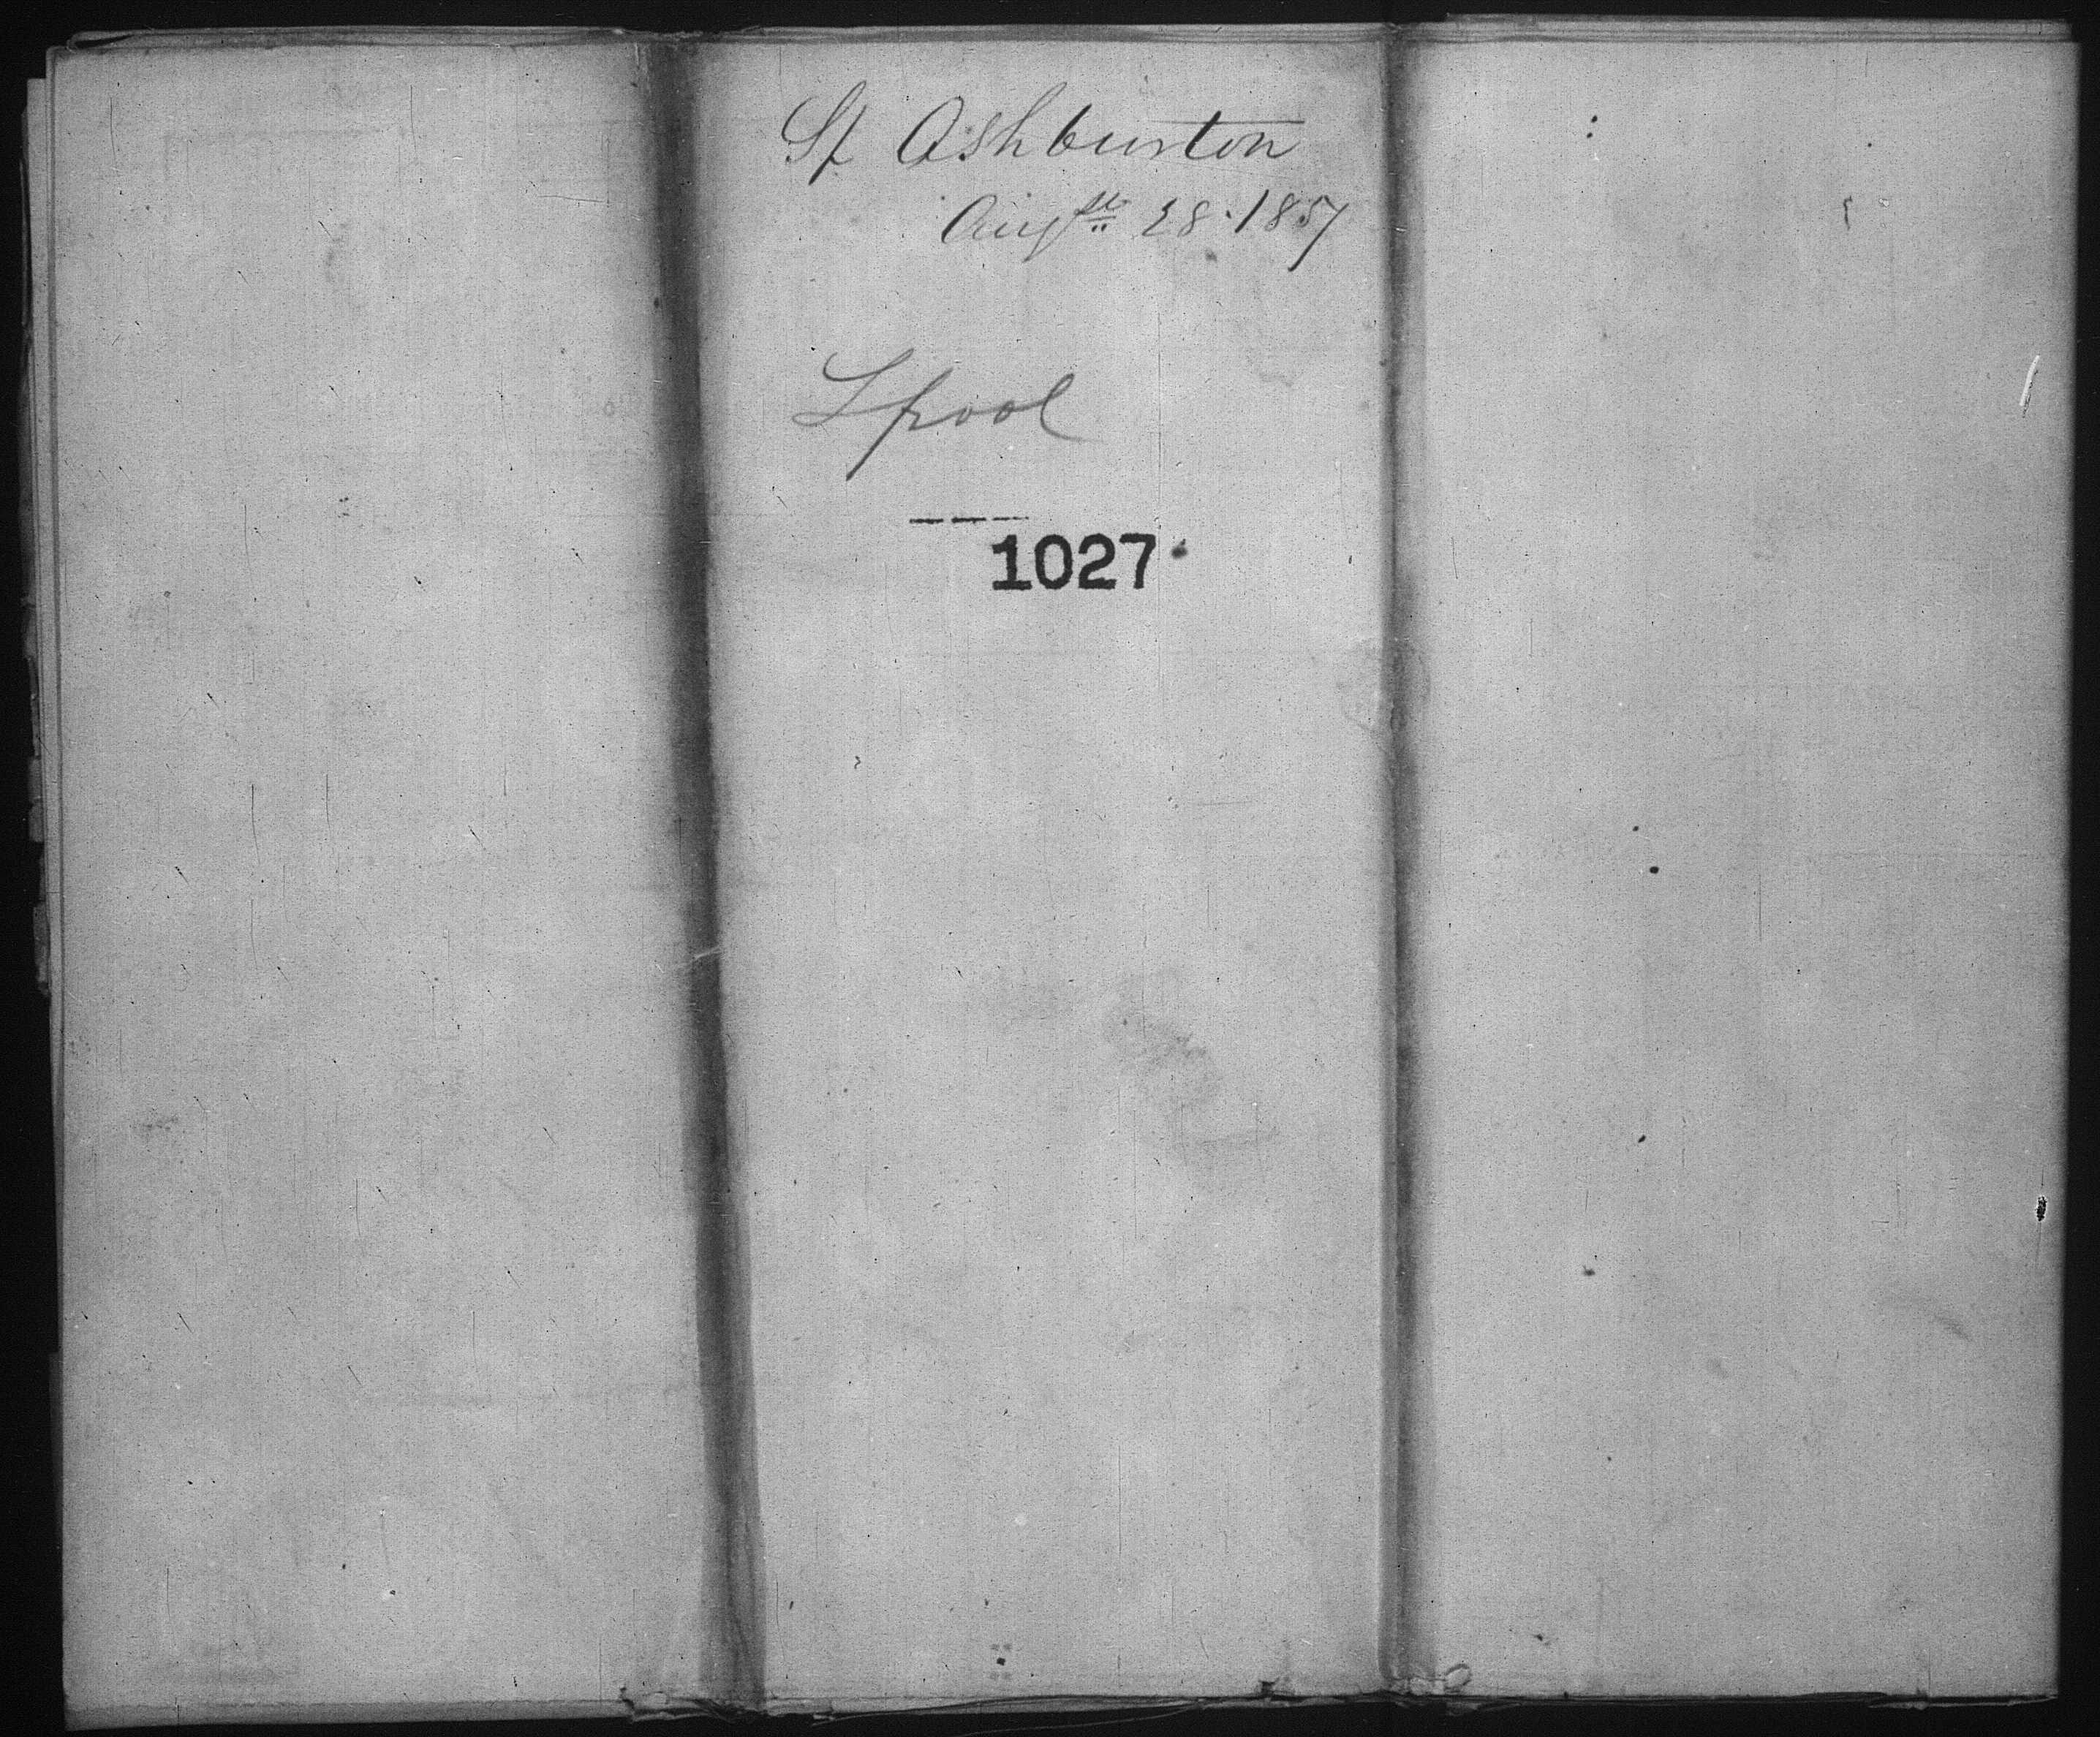 Sp Ashburton
Augst 28. 1857
Lpool
1027